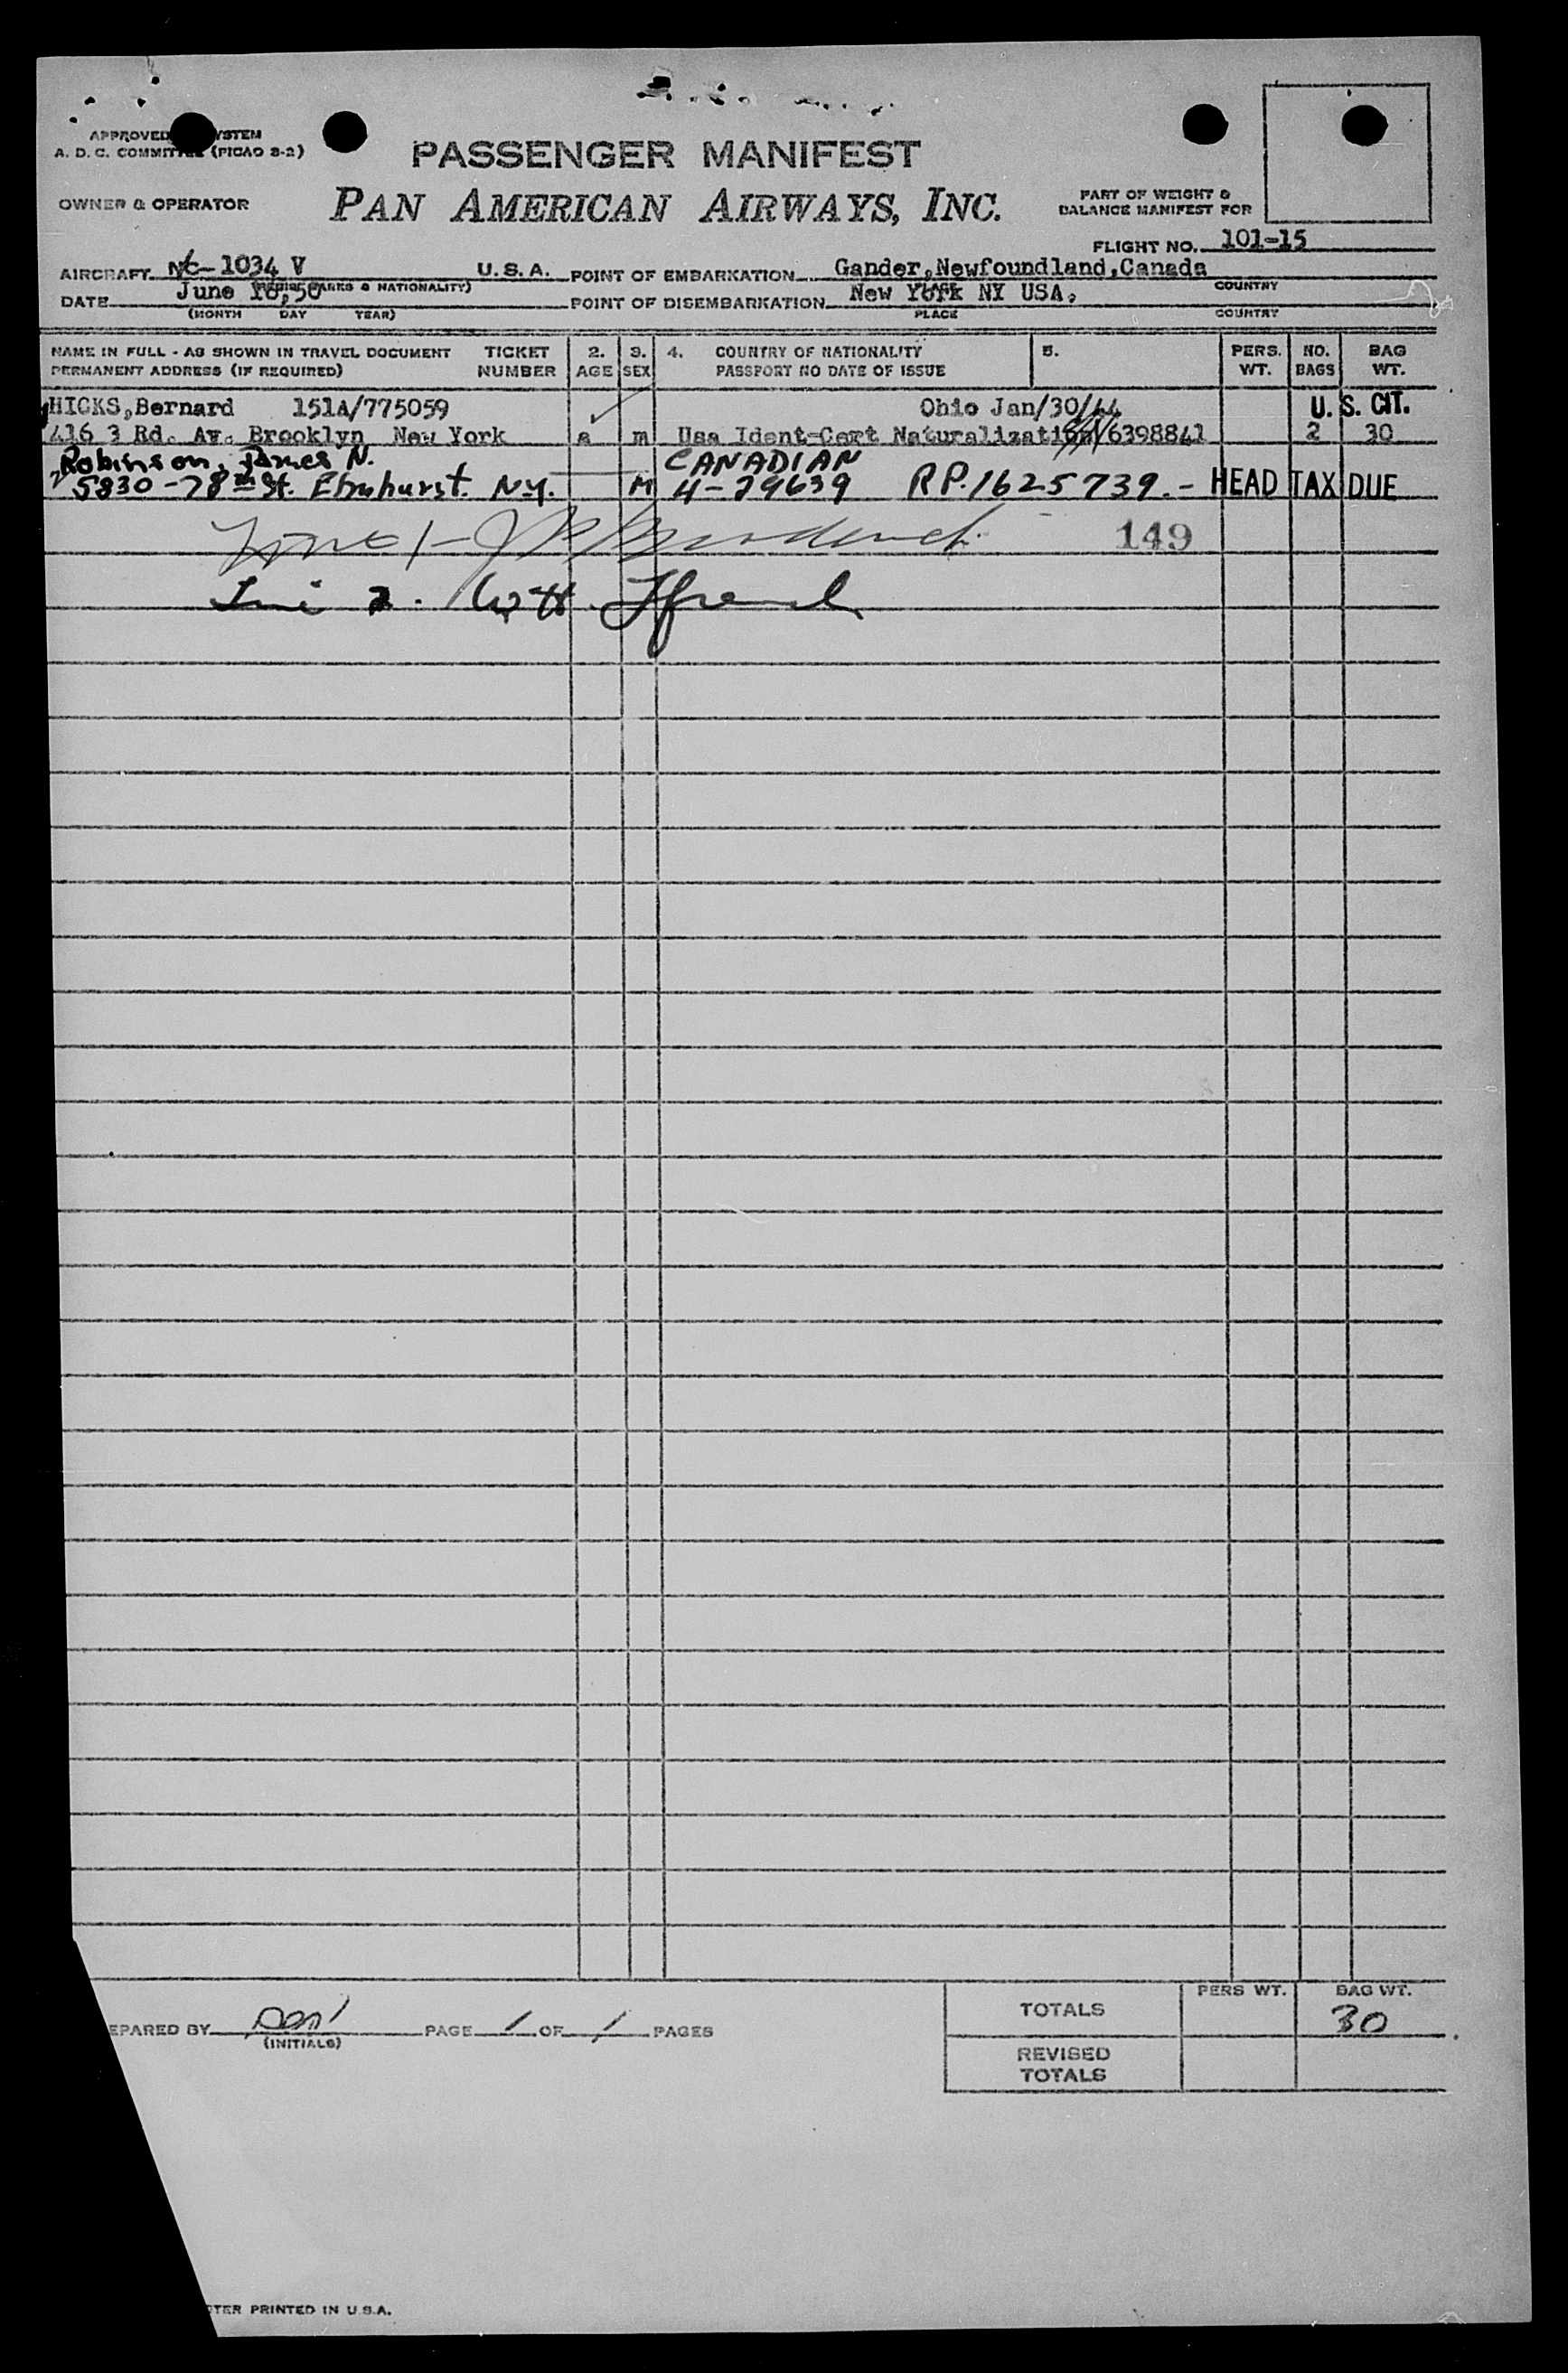 APPROVED SYSTEM
A. D. C. COMMITTEE (PICAO 8-2)
PASSENGER MANIFEST
OWNER & OPERATOR
PAN AMERICAN AIRWAYS, INC.
PART OF WEIGHT &
BALANCE MANIFEST FOR
FLIGHT NO. 101-15
AIRCRAFT NC-1034 V U.S.A. POINT OF EMBARKATION Gander,Newfoundland,Canada
MARKS & NATIONALITY) PLACE COUNTRY
DATE June POINT OF DISEMBARKATION New York NY USA.
(MONTH DAY YEAR) PLACE COUNTRY
NAME IN FULL - AS SHOWN IN TRAVEL DOCUMENT TICKET 2. 3. 4. COUNTRY OF NATIONALITY 5. PERS. NO. BAG
PERMANENT ADDRESS (IF REQUIRED) NUMBER AGE SEX PASSPORT NO DATE OF ISSUE WT. BAGS WT.
HICKS,Bernard 151A/775059 Ohio Jan/30/44 U.S. CIT.
416 3 Rd. Av. Brooklyn New York a m Usa Ident-Cert Naturalization/6398841 2 30
Robinson, James N. CANADIAN
5830-78th St. Elmhurst. N.Y. M 4-29639 RP.1625739.- HEAD TAX DUE
149
PREPARED BY (INITIALS) PAGE 1 OF 1 PAGES
TOTALS PERS WT. BAG WT. 30
REVISED
TOTALS
PRINTED IN U.S.A.